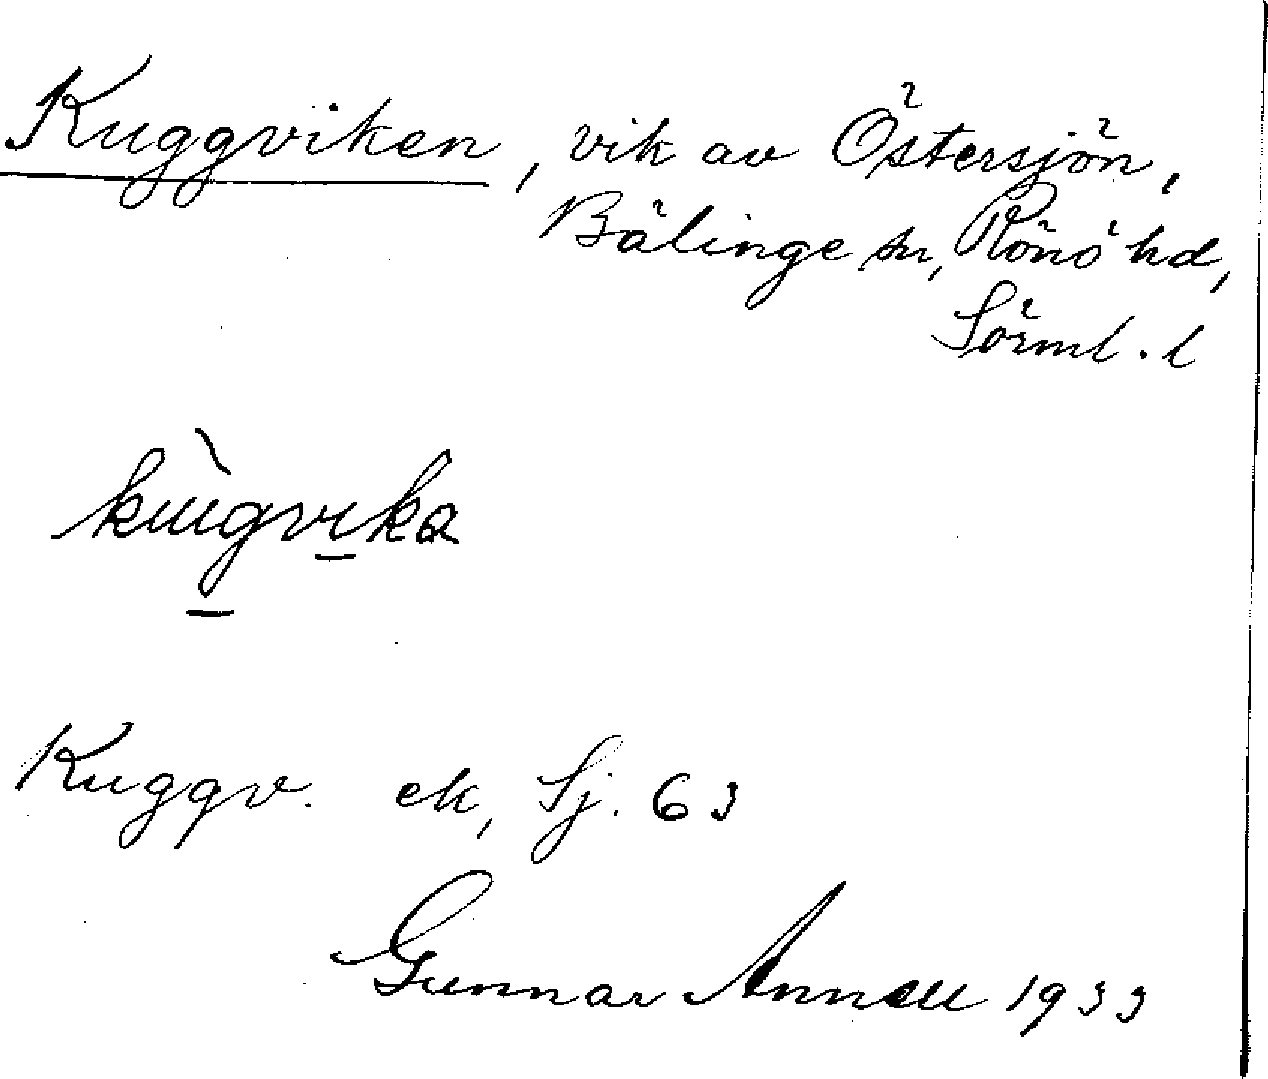 Kuggviken, vik av Östersjön,
Bälinge sn, Rönö hd,
Sörml. l
kùgvika
Kuggv. ek, Sj. 63
Gunnar Annell 1933